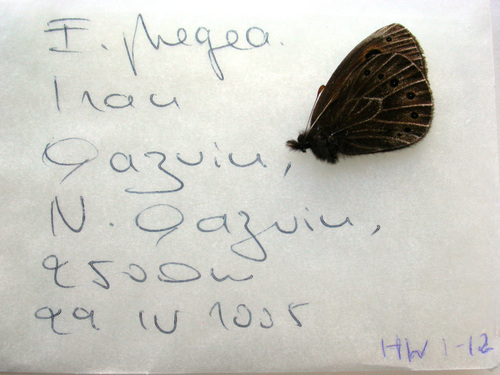 E. phegea.
Iran
Qazvin,
N. Qazvin,
2500m
29 IV 2005
HW 1-12